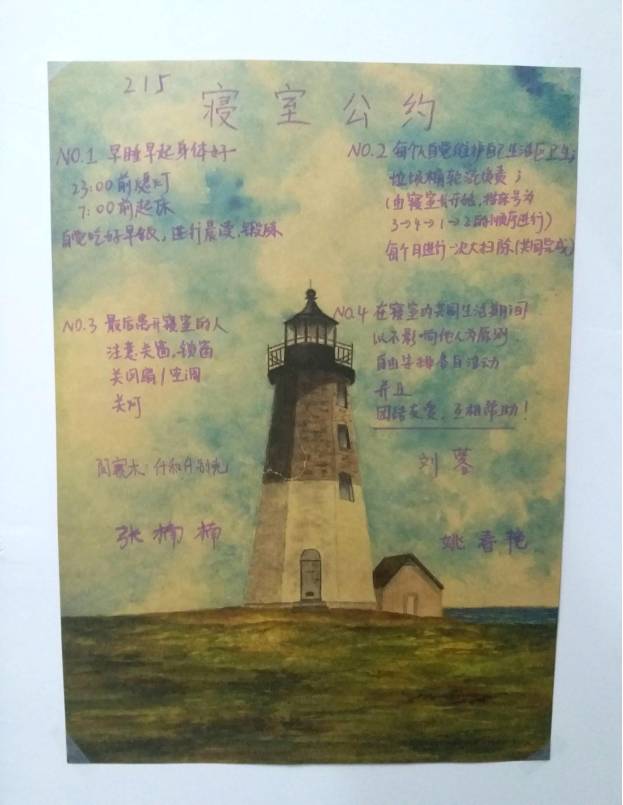 215
寝室公约
NO.1 早睡早起身体好
23:00前熄灯
7:00前起床
自觉吃好早饭，进行晨读、锻炼
NO.2 每个人自觉维护自己生活区卫生；
垃圾桶轮流负责；
(由寝室长开始，按床号为
3→4→1→2的顺序进行)
每个月进行一次大扫除(共同完成)
NO.3 最后离开寝室的人
注意关窗、锁窗
关风扇/空调
关灯
NO.4 在寝室的共同生活期间
以不影响他人为原则
自由安排各自活动
并且
团结友爱，互相帮助！
刘
张楠楠
姚春艳